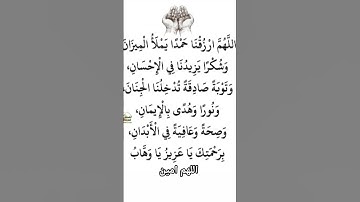 اللَّهُمَّ ارْزُقْنَا حَمْدًا يَمْلَأُ الْمِيزَانَ
وَشُكْرًا يَزِيدُنَا فِي الْإِحْسَانِ،
وَتَوْبَةً صَادِقَةً تُدْخِلُنَا الْجِنَانَ،
وَنُورًا وَهُدًى بِالْإِيمَانِ،
وَصِحَةً وَعَافِيَةً فِي الْأَبْدَانِ،
بِرَحْمَتِكَ يَا عَزِيزُ يَا وَهَّابُ
اللهم امين